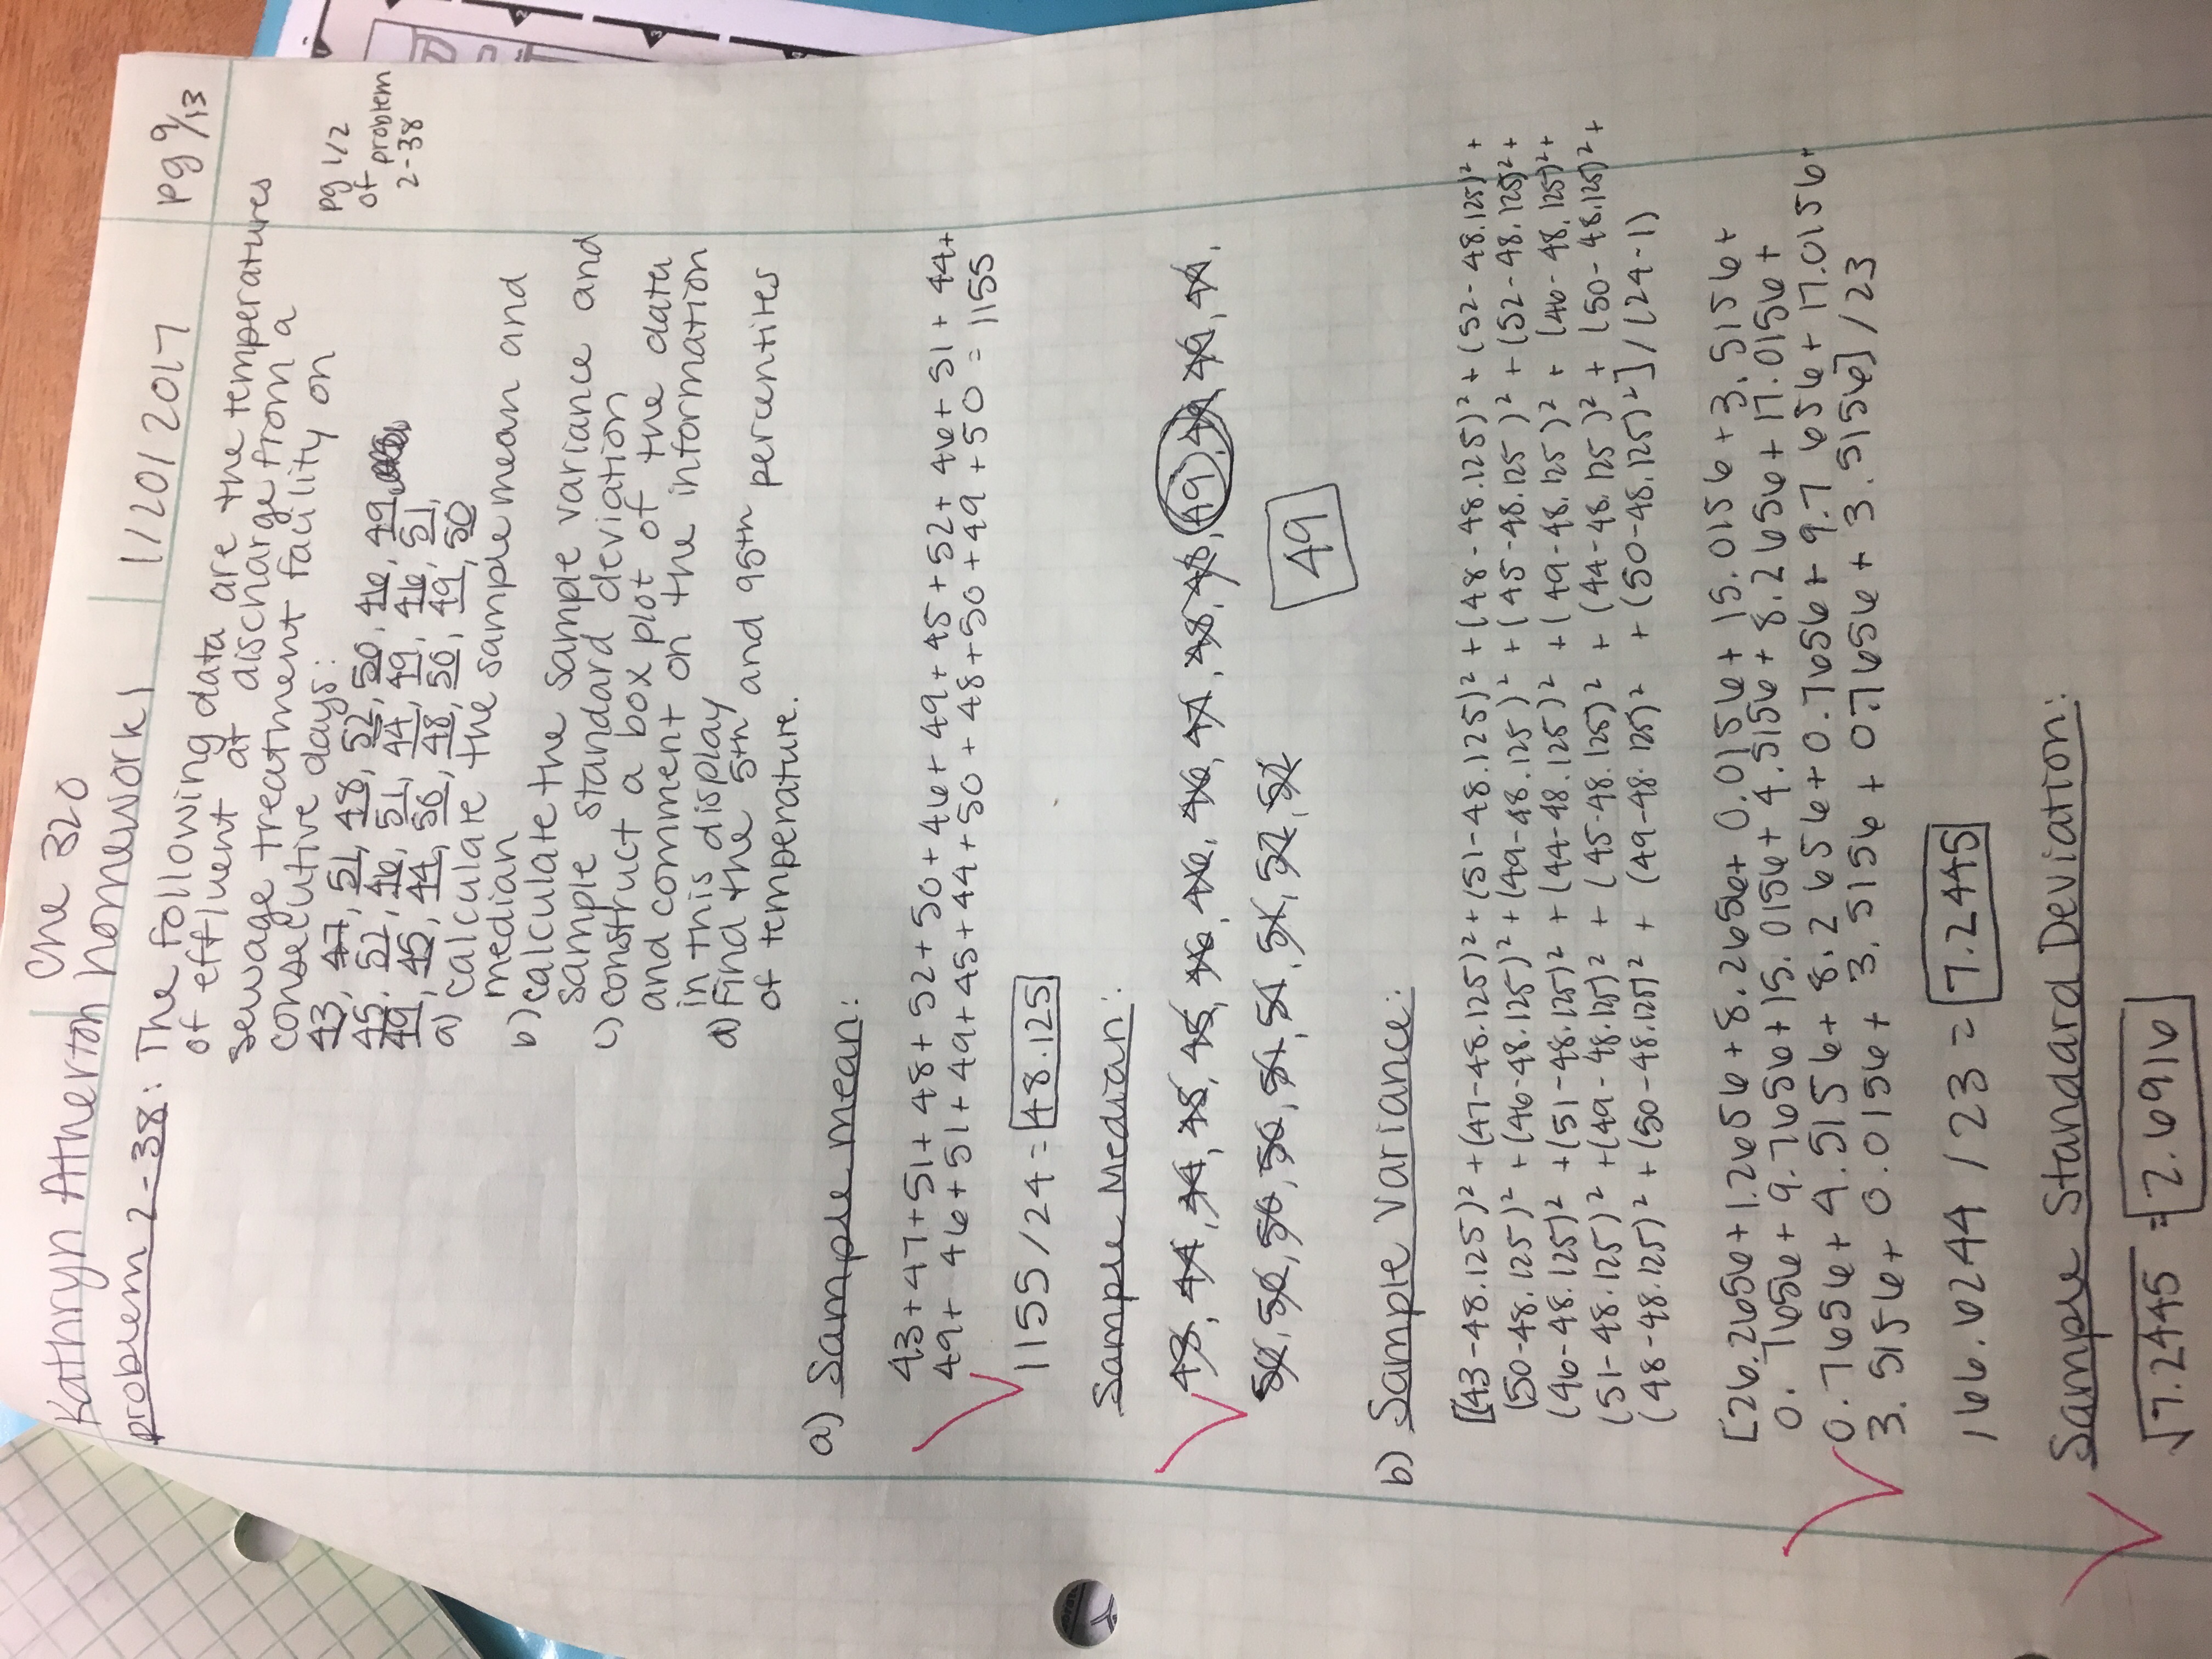 Kathryn Atherton
Che 320
Homework 1
1/20/2017
pg 9/13
problem 2-38: The following data are the temperatures
of effluent at discharge from a
sewage treatment facility on
consecutive days:
43, 47, 51, 48, 52, 50, 46, 49,
45, 52, 46, 51, 44, 49, 46, 51,
49, 45, 44, 50, 48, 50, 49, 50
pg 1/2
of problem
2-38
a) calculate the sample mean and
median
b) calculate the sample variance and
sample standard deviation
c) construct a box plot of the data
and comment on the information
in this display
d) Find the 5th and 95th percentiles
of temperature.
a) Sample mean:
43+47+51+48+52+50+46+49+45+52+46+51+44+
49+46+51+49+45+44+50+48+50+49+50 = 1155
1155/24 = 48.125
Sample Median:
43, 44, 44, 45, 45, 46, 46, 46, 47, 48, 48, 49, 49, 49, 49,
50, 50, 50, 50, 51, 51, 51, 52, 52
49
b) Sample Variance:
[(43-48.125)²+(47-48.125)²+(51-48.125)²+(48-48.125)²+(52-48.125)²+
(50-48.125)²+(46-48.125)²+(49-48.125)²+(45-48.125)²+(52-48.125)²+
(46-48.125)²+(51-48.125)²+(44-48.125)²+(49-48.125)²+(46-48.125)²+
(51-48.125)²+(49-48.125)²+(45-48.125)²+(44-48.125)²+(50-48.125)²+
(48-48.125)²+(50-48.125)²+(49-48.125)²+(50-48.125)²]/(24-1)
[26.2656+1.2656+8.2656+0.0156+15.0156+3.5156+
0.7656+9.7656+15.0156+4.5156+8.2656+17.0156+
0.7656+4.5156+8.2656+0.7656+9.7656+17.0156+
3.5156+0.0156+3.5156+0.7656+3.5156]/23
166.6244/23 = 7.2445
Sample Standard Deviation:
√7.2445 = 2.6916